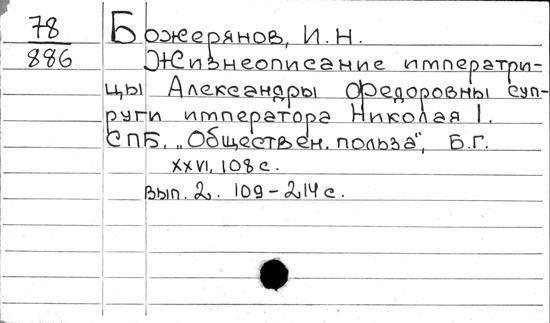 78
886
Божерянов, И.Н.
Жизнеописание императри-
цы Александры Федоровны суп-
руги императора Николая I.
СПБ. „Обществен. польза", Б.Г.
XXVI, 108 с.
Вып. 2. 109-214 с.